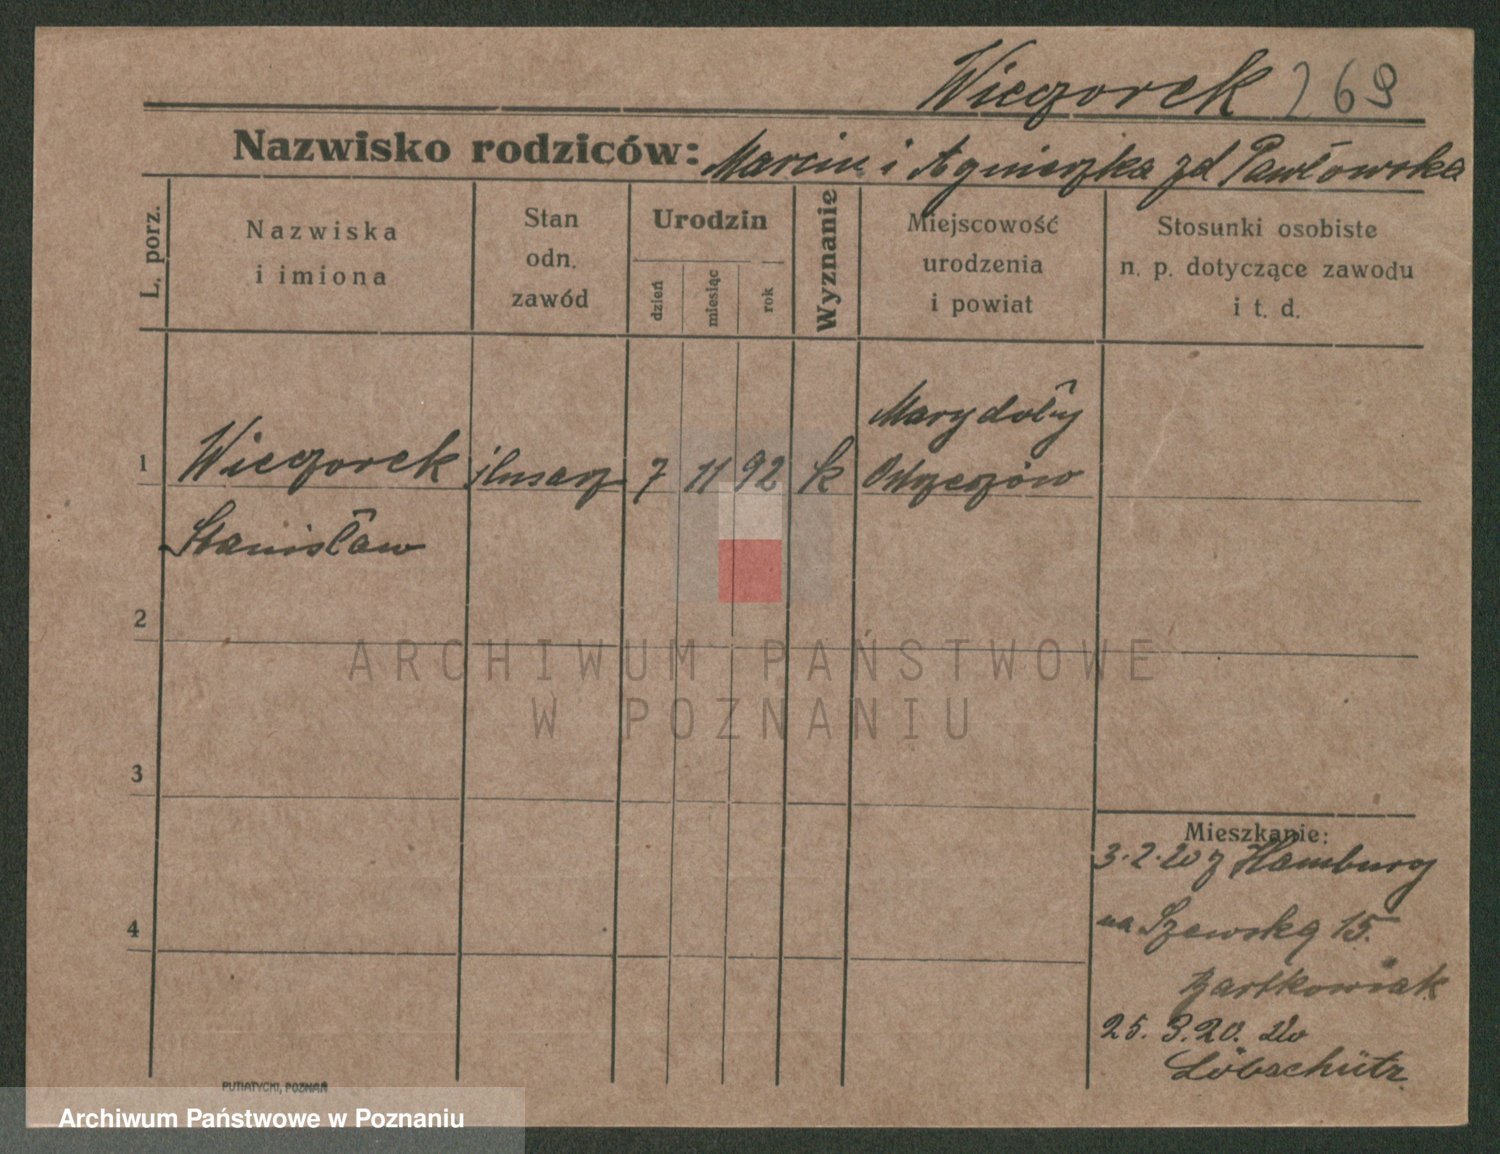 Wieczorek 269
Nazwisko rodziców: Marcin i Agnieszka zd Pawłowska
L. porz.
Nazwiska
i imiona
Stan
odn.
zawód
Urodzin
dzień
miesiąc
rok
Wyznanie
Miejscowość
urodzenia
i powiat
Stosunki osobiste
n. p. dotyczące zawodu
i t. d.
1
Wieczorek ślusarz 7 11 92 k
Marydoły
Ostrzeszów
Stanisław
2
ARCHIWUM PAŃSTWOWE
W POZNANIU
3
4
Mieszkanie:
3.2.20 z Hamburg
na Szewską 15.
Bartkowiak
25. 3.20. do
Löbschütz
PUTIATYCKI, POZNAŃ
Archiwum Państwowe w Poznaniu